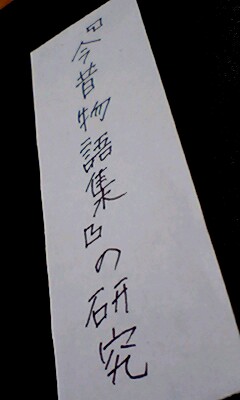 『今昔物語集』の研究